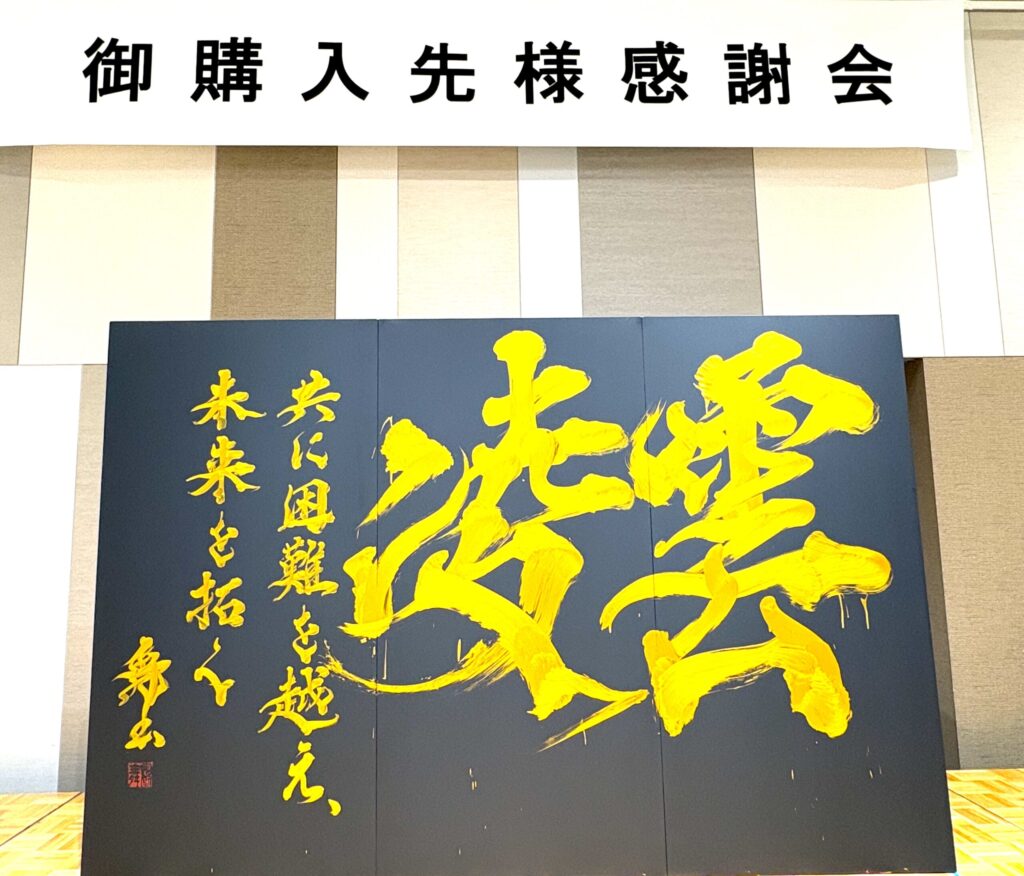 御購入先様感謝会
凌雲
共に困難を越え、
未来を拓く